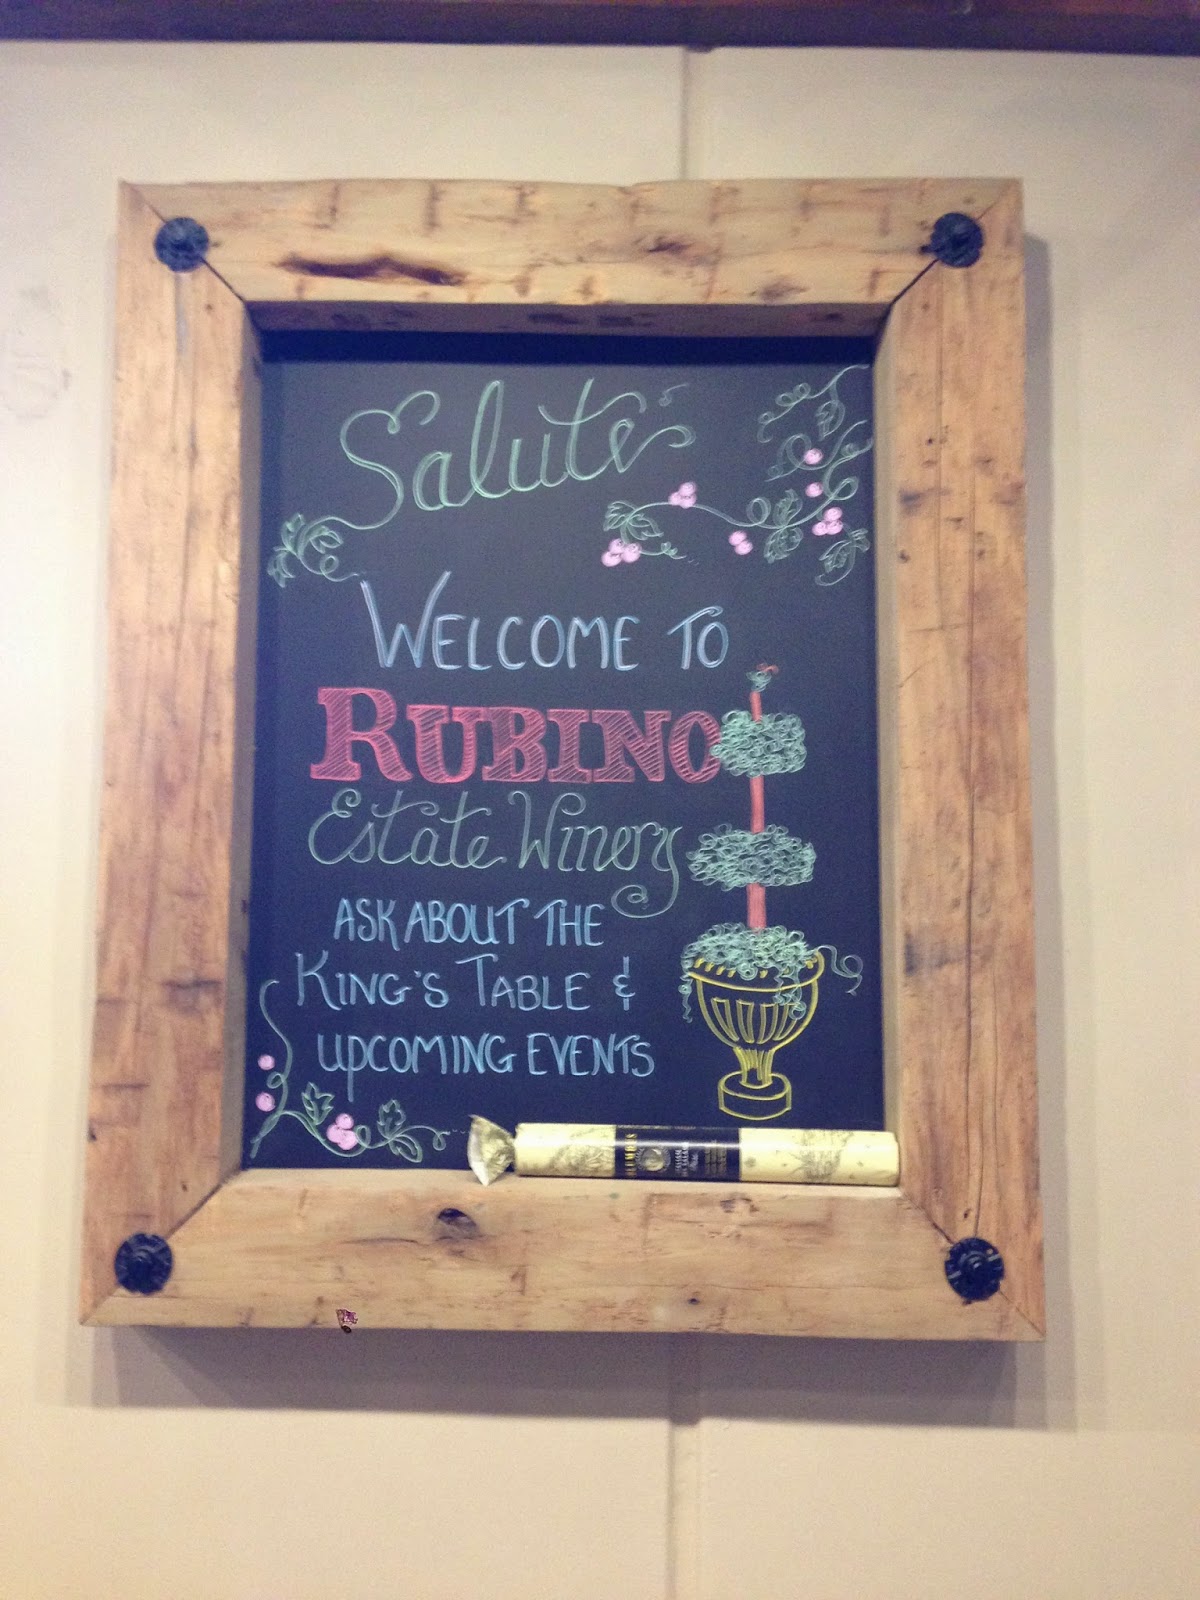 Salute
WELCOME TO
RUBINO
Estate Winery
ASK ABOUT THE
KING'S TABLE &
UPCOMING EVENTS